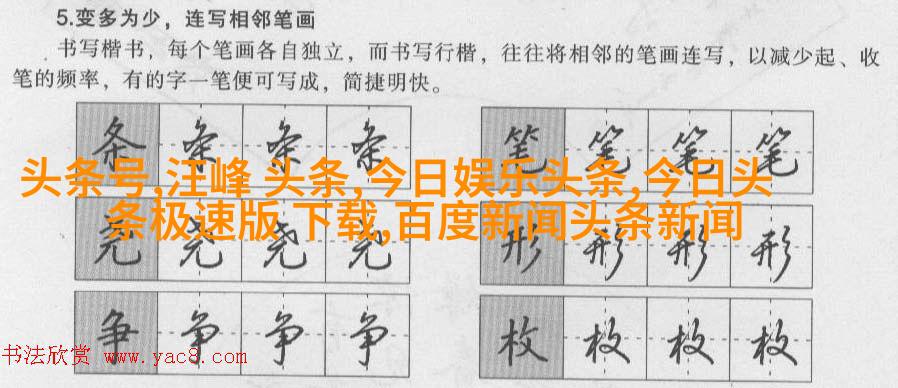 5.变多为少，连写相邻笔画
书写楷书，每个笔画各自独立，而书写行楷，往往将相邻的笔画连写，以减少起、收
笔的频率，有的字一笔便可写成，简捷明快。
条 条 条 条 笔 笔 笔 笔
头条号,汪峰 头条,今日娱乐头条,今日头
条极速版 下载,百度新闻头条新闻
尧 尧 尧 尧 形 形 形 形
争 争 争 争 枚 枚 枚 枚
书法欣赏 www.yac8.com